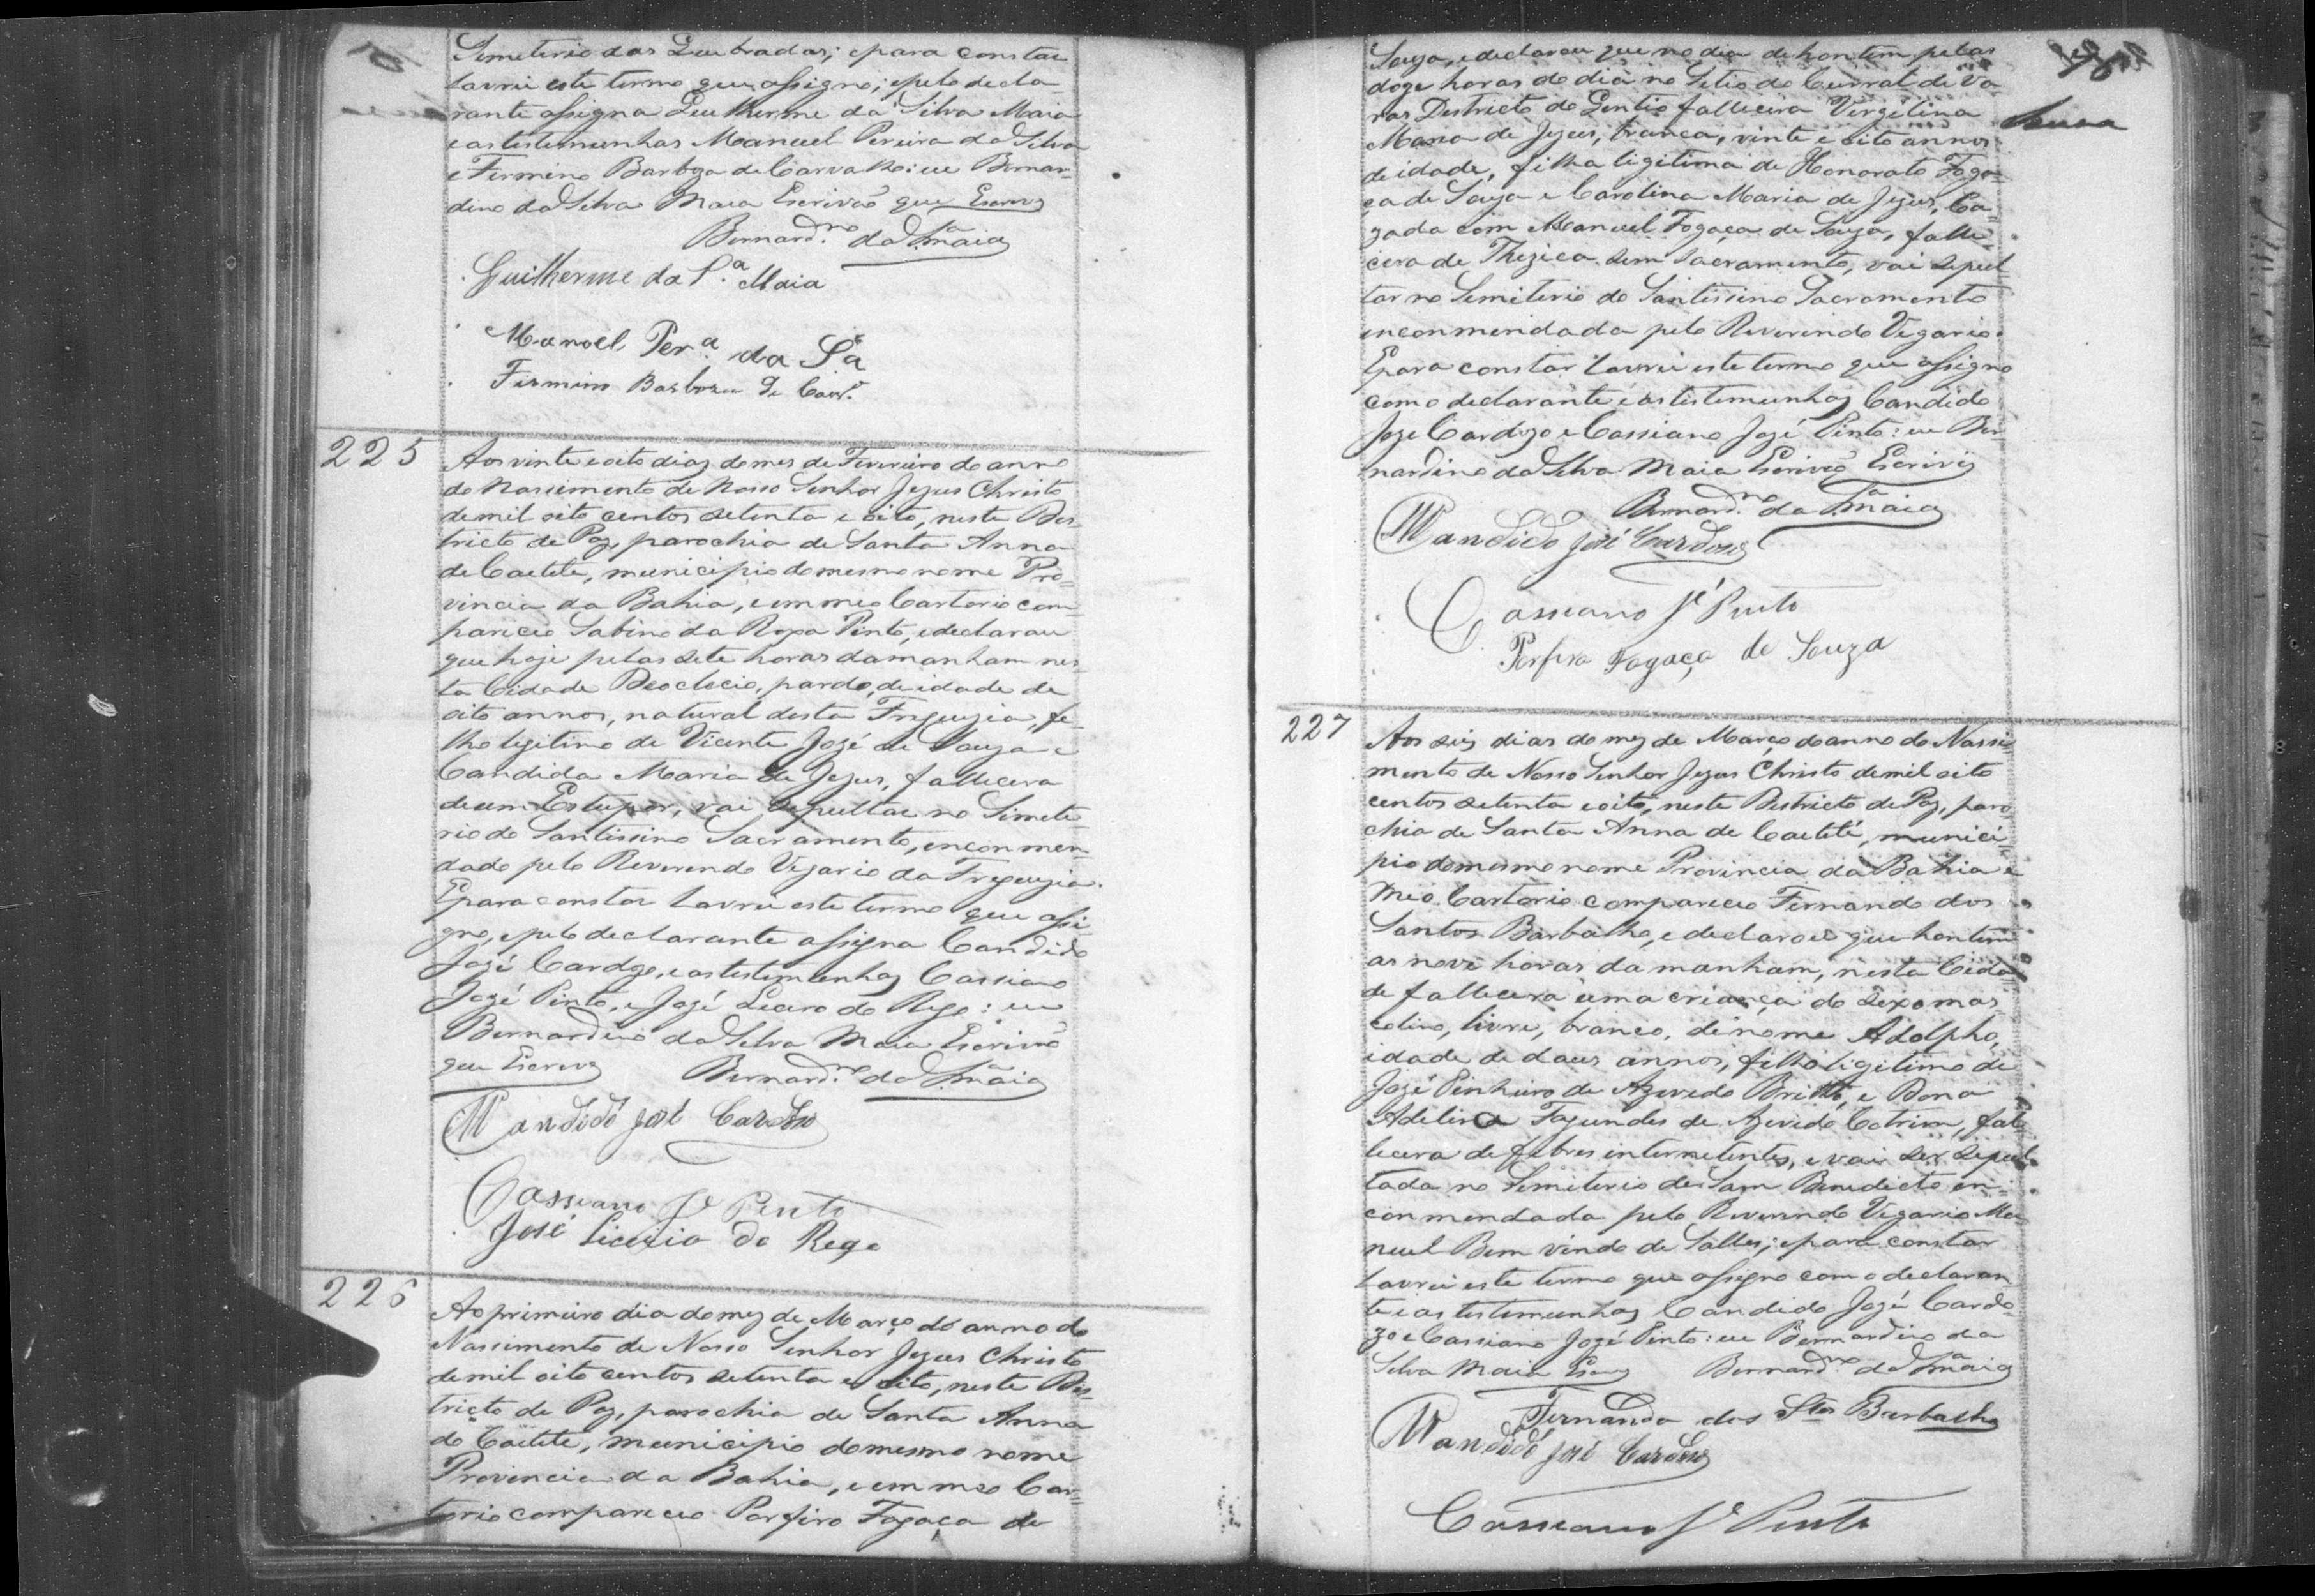 Simeterio das Quebradas; epara constar
lavrei este termo que assigno; epelo decla-
rante assigna Guilherme da Silva Maia
e as testemunhas Manuel Pereira da Silva
e Firmino Barboza de Carvalho: eu Bernar-
dino da Silva Maia Escrivaõ que Escrevy
Bernard.no da S.a Maia
Guilherme da S.a Maia
Manoel Per.a da S.a
Firmino Barboza de Carv.o
225
Aos vinte e oito dias do mes de Fevereiro do anno
do Nassimento de Nosso Senhor Jezus Christo
de mil oito centos setenta e oito, neste Des-
tricto de Paz, parochia de Santa Anna
de Caetete, municipio do mesmo nome Pro-
vincia da Bahia, e em meo Cartorio com-
pareceo Sabino da Roxa Pinto, e declarou
que hoje pelas sete horas da manham nes-
ta Cidade Deoclecio, pardo, de idade de
oito annos, natural desta Freguezia, fi-
lho legitimo de Vicente Jozé de Souza e
Candida Maria de Jezus, fallecera
de um Estupor, vai sepultar no Simite-
rio do Santissimo Sacramento, enconmen-
dado pelo Reverendo Vigario da Freguezia.
Epara constar lavrei este termo que assi-
gno, epelo declarante assigna Candido
Jozé Cardozo, e as testemunhas Cassiano
Jozé Pinto, e Jozé Licero do Rego: eu
Bernardino da Silva Maia Escrivaõ
que Escrevy Bernard.no da S.a Maia
Candido José Cardoso
Cassiano J.e Pinto
José Licerio do Rego
226
Ao primeiro dia do mez de Março do anno do
Nassimento de Nosso Senhor Jezus Christo
de mil oito centos setenta e oito, neste Des-
tricto de Paz, parochia de Santa Anna
de Caetete, municipio do mesmo nome
Provincia da Bahia, e em meo Car-
torio compareceo Porfiro Fogaça de
Souza, e declarou que no dia de hontem pelas
doze horas do dia no Sitio do Curral de Va-
ras Destricto do Gentio fallecêra Vergilina
Maria de Jezus, branca, vinte e oito annos
de idade, filha legitima de Honorato Foga-
ça de Souza e Carolina Maria de Jezus, Ca-
zada com Manuel Fogaça de Souza, falle-
cera de Thizica sem Sacramento, vai sepul-
tar no Simiterio do Santissimo Sacramento
enconmendada pelo Reverendo Vigario.
Epara constar lavrei este termo que assigno
com o declarante e as testemunhas Candido
Joze Cardozo e Cassiano Jozé Pinto: eu Ber-
nardino da Silva Maia Escrivaõ Escrivy
Bernard.no da S.a Maia
Candido José Cardoso
Cassiano J.e Pinto
Porfiro Fogaça de Souza
227
Aos seis dias do mez de Março do anno do Nassi-
mento de Nosso Senhor Jezus Christo de mil oito
centos setenta e oito, neste Destricto de Paz, paro-
chia de Santa Anna de Caetité, munici-
pio do mesmo nome Provincia da Bahia e
meo Cartorio compareceo Fernando dos
Santos Barbalho, e declarou que hontem
as nove horas da manham, nesta Cida-
de fallecera uma criança do sexo mas-
colino, livre, branco, de nome Adolpho,
idade de dous annos, filho legitimo de
Jozé Pinheiro de Azevedo Britto, e Dona
Adelina Fagundes de Azevido Cotrim, fal-
lecera de febres intermetentes, e vai ser sepul-
tada no Simiterio de Sam Benedicto en-
conmendada pelo Reverendo Vigario Ma-
nuel Bem vindo de Salles; epara constar
lavrei este termo que assigno com o declaran-
te e as testemunhas Candido Jozé Cardo-
zo e Cassiano Jozé Pinto: eu Bernardino da
Silva Maia Escry Bernard.no da S.a Maia
Fernando dos S.tos Barbalho
Candido José Cardoso
Cassiano J.e Pinto